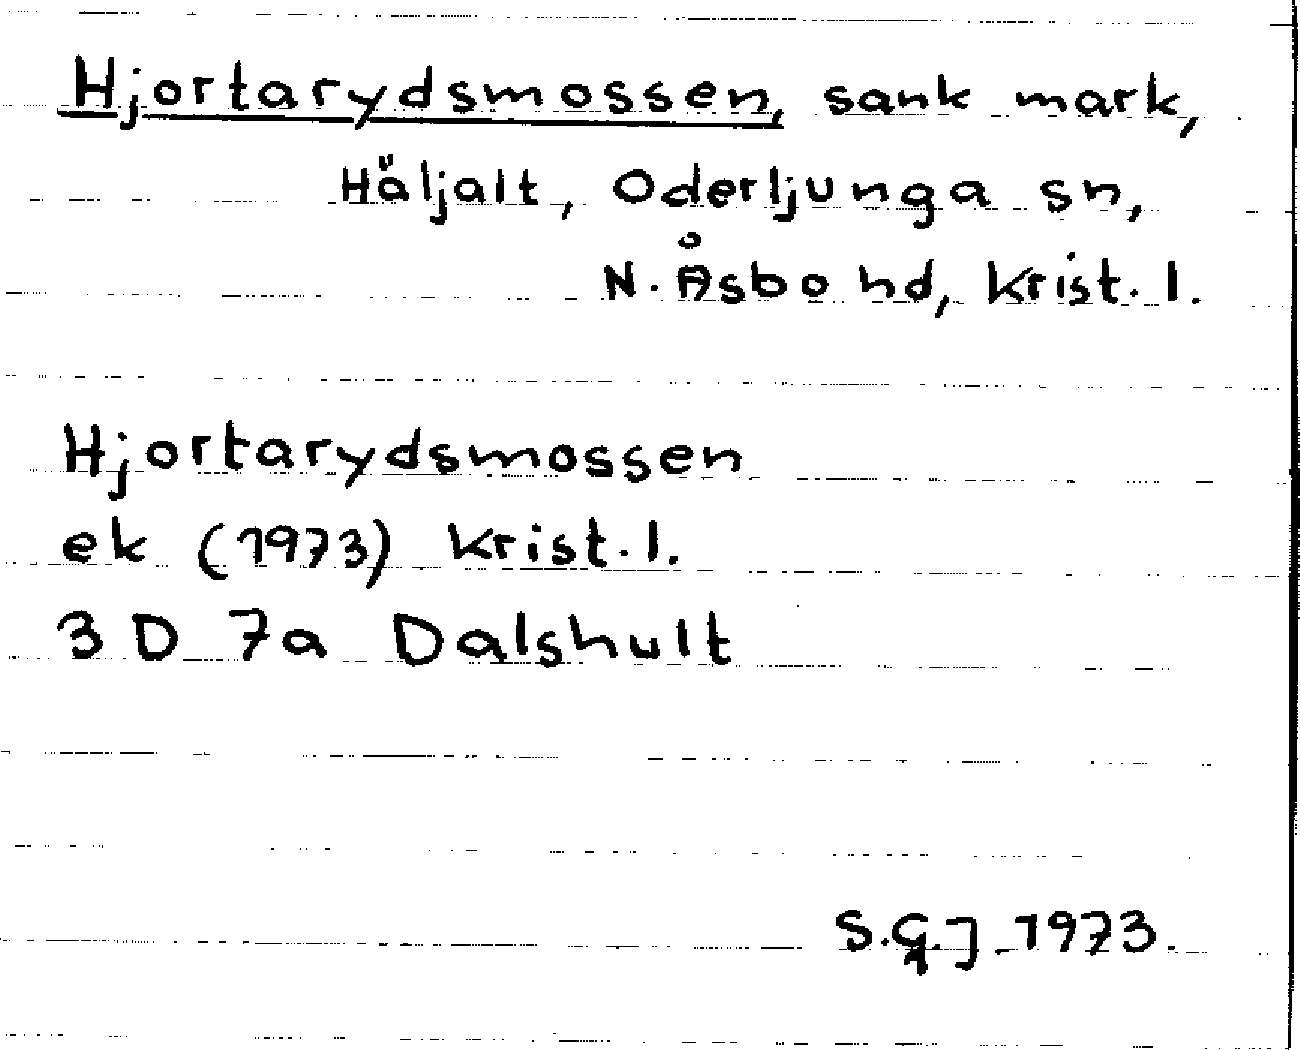 Hjortarydsmossen, sank mark,
Häljalt, Oderljunga sn,
N. Åsbo hd, Krist. l.
Hjortarydsmossen
ek (1973) Krist. l.
3 D 7a Dalshult
S.G.J 1973.